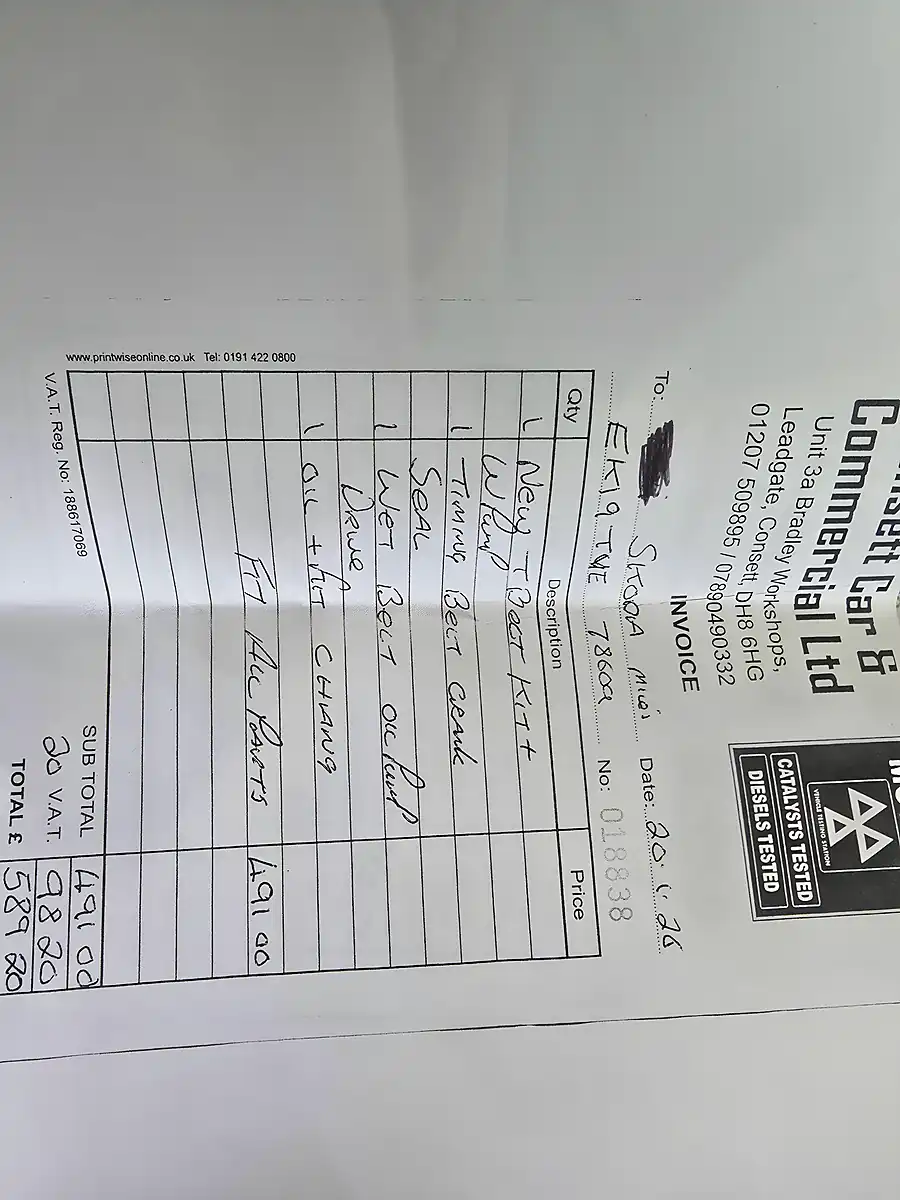 Consett Car &
Commercial Ltd
Unit 3a Bradley Workshops,
Leadgate, Consett, DH8 6HG
01207 509895 / 07890490332
CATALYSTS TESTED
DIESELS TESTED
VEHICLE TESTING STATION
INVOICE
To: SKODA Date: 20.
78602 No: 018838
Qty Description Price
1 New T Belt Kit +
W Pump
1 TIMING BELT CRANK
SEAL
1 WET BELT OIL Pump
DRIVE
1 OIL + FILT CHANG
FIT ALL PARTS 491 00
SUB TOTAL 491 00
20 V.A.T. 98 20
TOTAL £ 589 20
www.printwiseonline.co.uk Tel: 0191 422 0800
V.A.T. Reg. No: 188617069